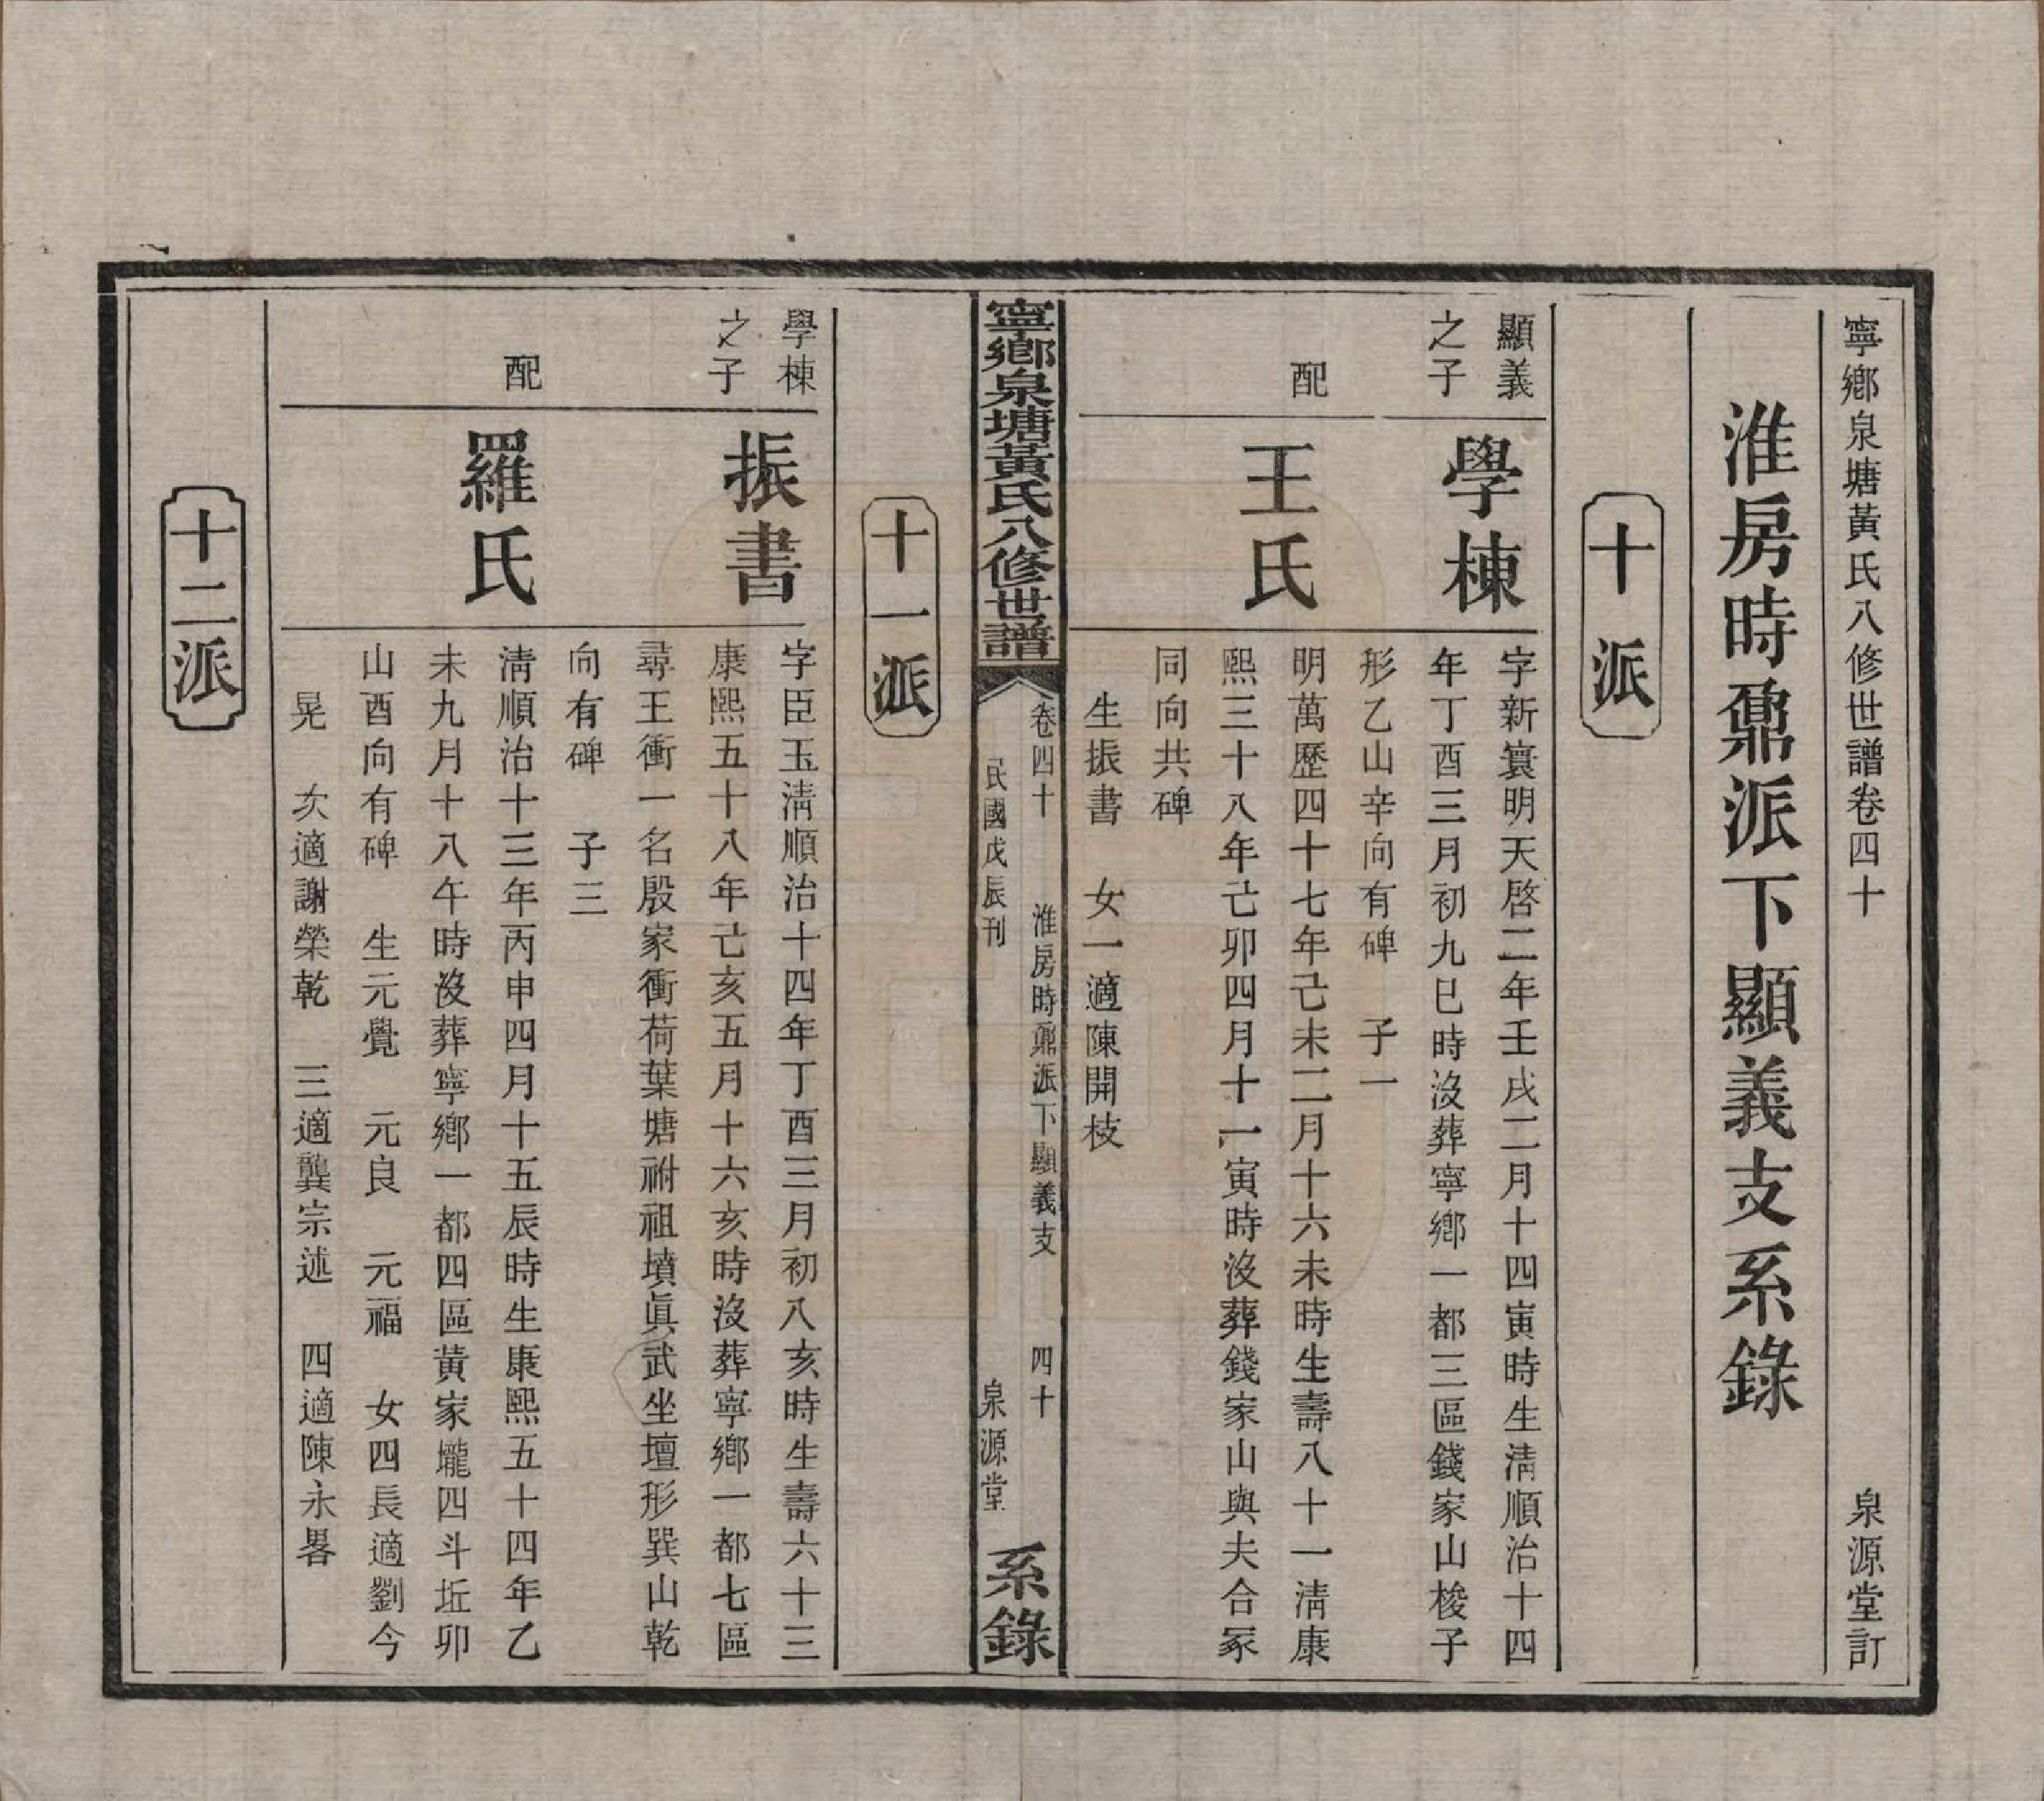 寧鄉泉塘黃氏八修世譜卷四十
泉源堂訂
淮房時鼐派下顯義支系錄
十派
顯義
之子
學棟
字新寰明天啓二年壬戌二月十四寅時生淸順治十四
年丁酉三月初九巳時沒葬寧鄉一都三區錢家山梭子
形乙山辛向有碑 子一
配
王氏
明萬歷四十七年己未二月十六未時生壽八十一淸康
熙三十八年己卯四月十一寅時沒葬錢家山與夫合冢
同向共碑
生振書 女一適陳開枝
寧鄉泉塘黃氏八修世譜
卷四十 淮房時鼐派下顯義支 四十
民國戊辰刊 泉源堂
系錄
十一派
學棟
之子
振書
字臣玉淸順治十四年丁酉三月初八亥時生壽六十三
康熙五十八年己亥五月十六亥時沒葬寧鄉一都七區
尋王衝一名殷家衝荷葉塘祔祖墳眞武坐壇形巽山乾
向有碑 子三
配
羅氏
淸順治十三年丙申四月十五辰時生康熙五十四年乙
未九月十八午時沒葬寧鄉一都四區黃家壠四斗坵卯
山酉向有碑 生元覺 元良 元福 女四長適劉今
晃 次適謝榮乾 三適龔宗述 四適陳永畧
十二派